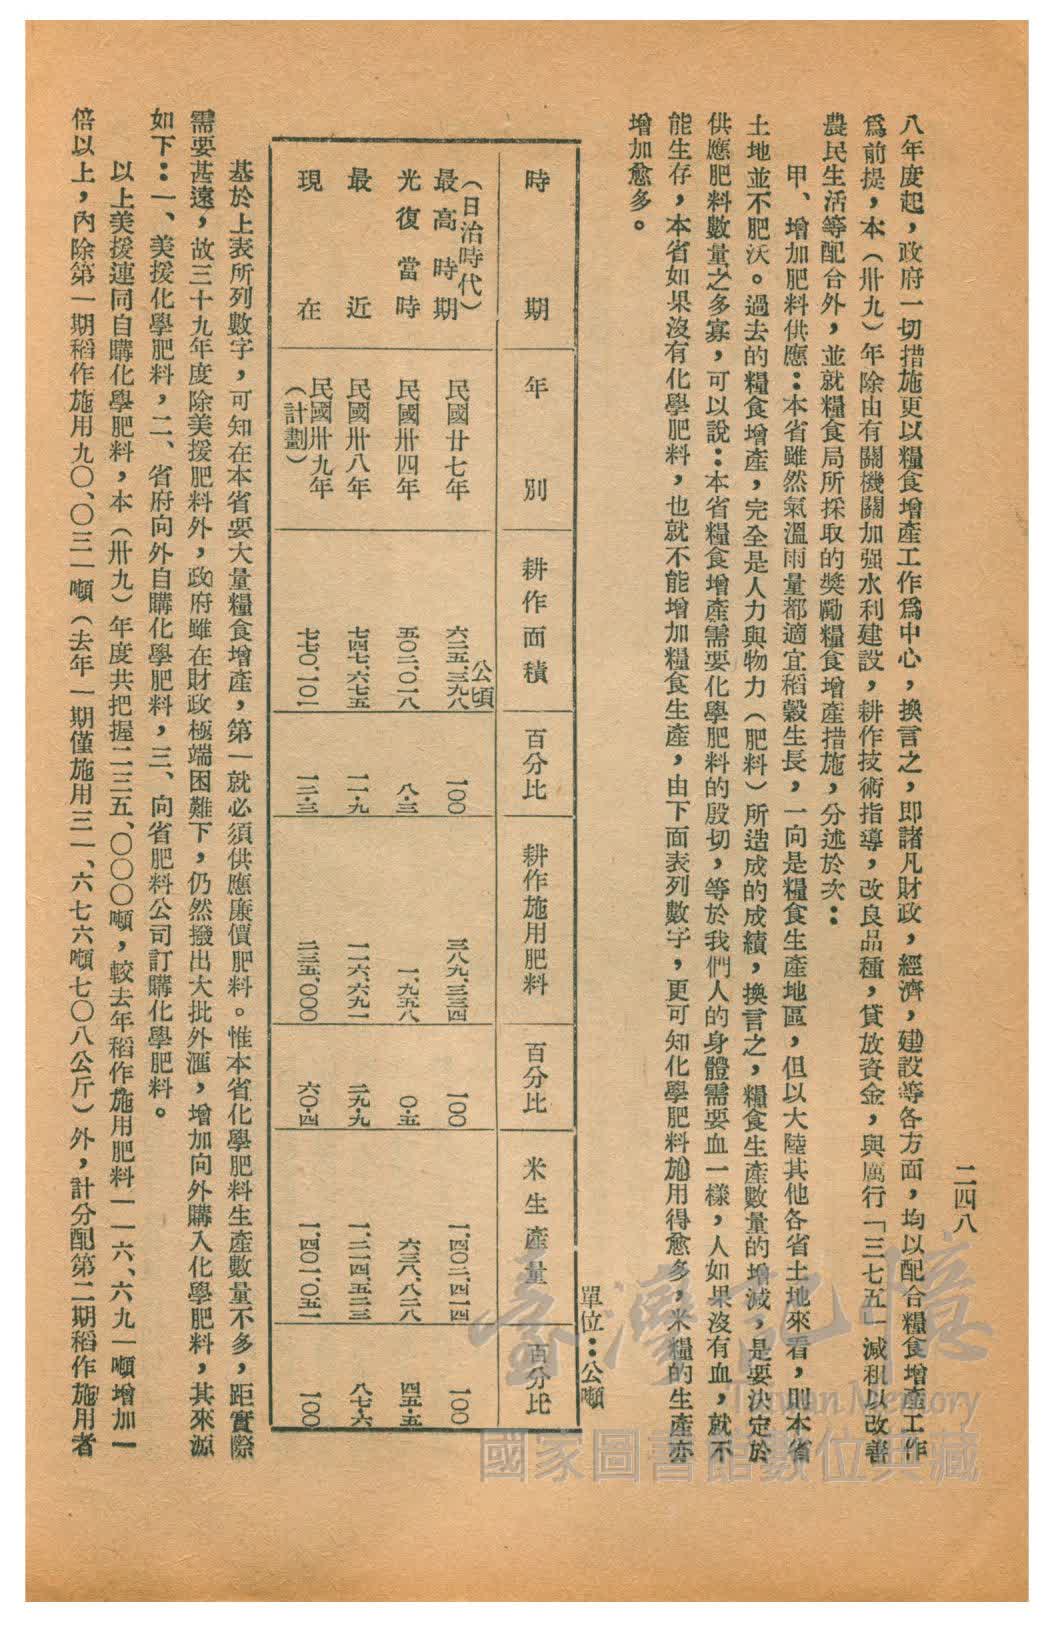 二四八
八年度起，政府一切措施更以糧食增產工作爲中心，換言之，即諸凡財政，經濟，建設等各方面，均以配合糧食增產工作
爲前提，本（卅九）年除由有關機關加强水利建設，耕作技術指導，改良品種，貸放資金，與厲行「三七五」減租以改善
農民生活等配合外，並就糧食局所採取的獎勵糧食增產措施，分述於次：
甲、增加肥料供應：本省雖然氣溫雨量都適宜稻穀生長，一向是糧食生產地區，但以大陸其他各省土地來看，則本省
土地並不肥沃。過去的糧食增產，完全是人力與物力（肥料）所造成的成績，換言之，糧食生產數量的增減，是要決定於
供應肥料數量之多寡，可以說：本省糧食增產需要化學肥料的殷切，等於我們人的身體需要血一樣，人如果沒有血，就不
能生存，本省如果沒有化學肥料，也就不能增加糧食生產，由下面表列數字，更可知化學肥料施用得愈多，米糧的生產亦
增加愈多。
單位：公噸
時期 年別 耕作面積 百分比 耕作施用肥料 百分比 米生產量 百分比
（日治時代）最高時期 民國廿七年 公頃 六二五、三九八 一〇〇 三八九、三三四 一〇〇 一、四〇二、四一四 一〇〇
光復當時 民國卅四年 五〇二、〇一八 八・三 一、九五八 〇・五 六三八、八二八 四五・五
最近 民國卅八年 七四七、六七五 一一・九 一一六、六九一 二九・九 一、二一四、五二三 八七・六
現在 民國卅九年（計劃） 七七〇、一〇一 一二・三 二三五、〇〇〇 六〇・四 一、四〇一、〇五一 一〇〇
基於上表所列數字，可知在本省要大量糧食增產，第一就必須供應廉價肥料。惟本省化學肥料生產數量不多，距實際
需要甚遠，故三十九年度除美援肥料外，政府雖在財政極端困難下，仍然撥出大批外滙，增加向外購入化學肥料，其來源
如下：一、美援化學肥料，二、省府向外自購化學肥料，三、向省肥料公司訂購化學肥料。
以上美援連同自購化學肥料，本（卅九）年度共把握二三五、〇〇〇噸，較去年稻作施用肥料一一六、六九一噸增加一
倍以上，內除第一期稻作施用九〇、〇三一噸（去年一期僅施用三一、六七六噸七〇八公斤）外，計分配第二期稻作施用者
臺灣記憶
Taiwan Memory
國家圖書館數位典藏